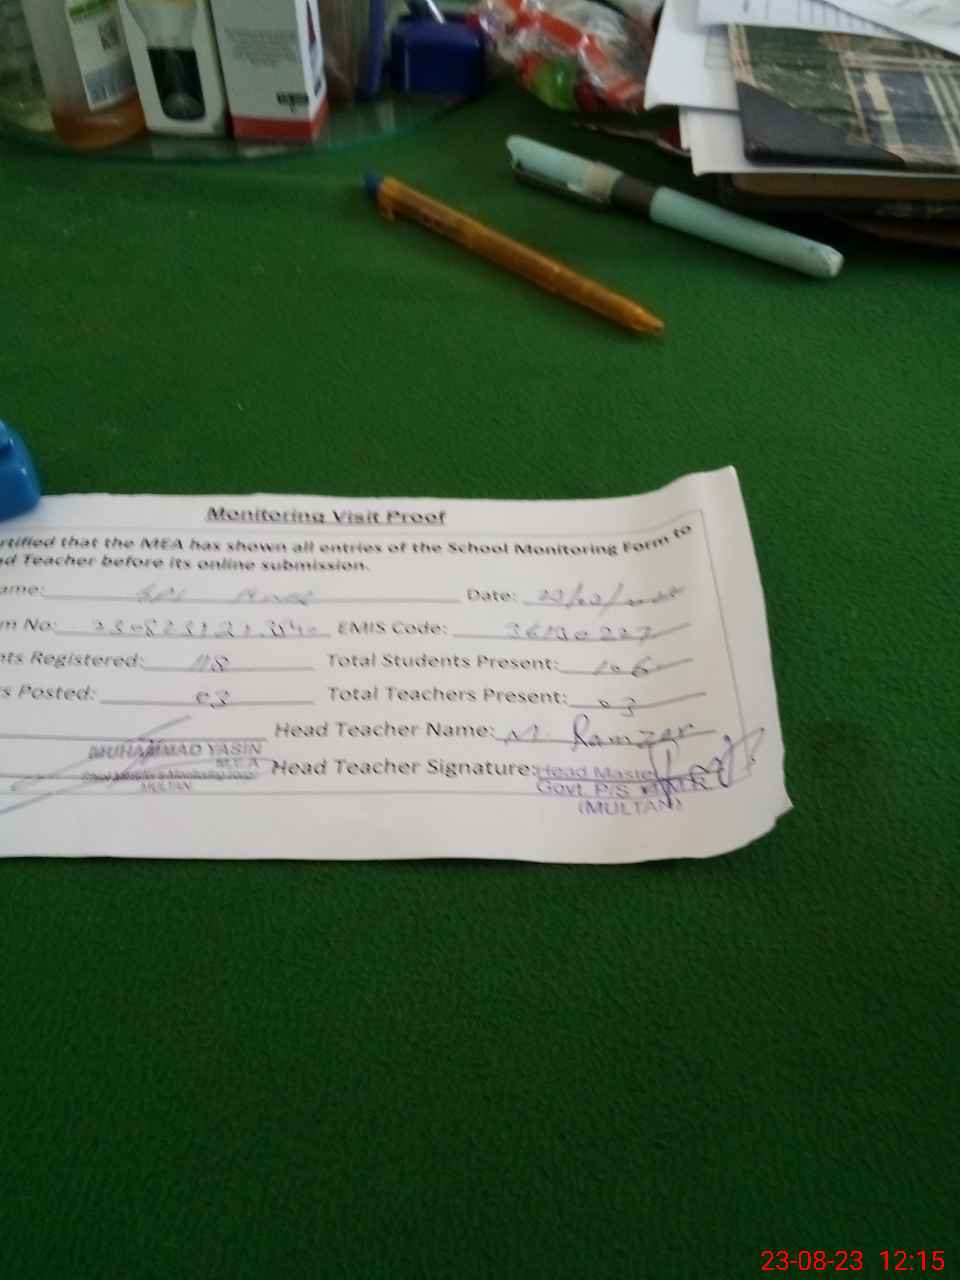 Monitoring Visit Proof
rtified that the MEA has shown all entries of the School Monitoring Form to
d Teacher before its online submission.
ame: Date:
m No: EMIS Code: 36130227
nts Registered: 118 Total Students Present: 106
s Posted: 03 Total Teachers Present: 03
Head Teacher Name: M. Ramzan
MUHAMMAD YASIN
M.E.A
Chief Minister's Monitoring Force
MULTAN
Head Teacher Signature:
Head Master
Govt. P/S
(MULTAN)
23-08-23 12:15